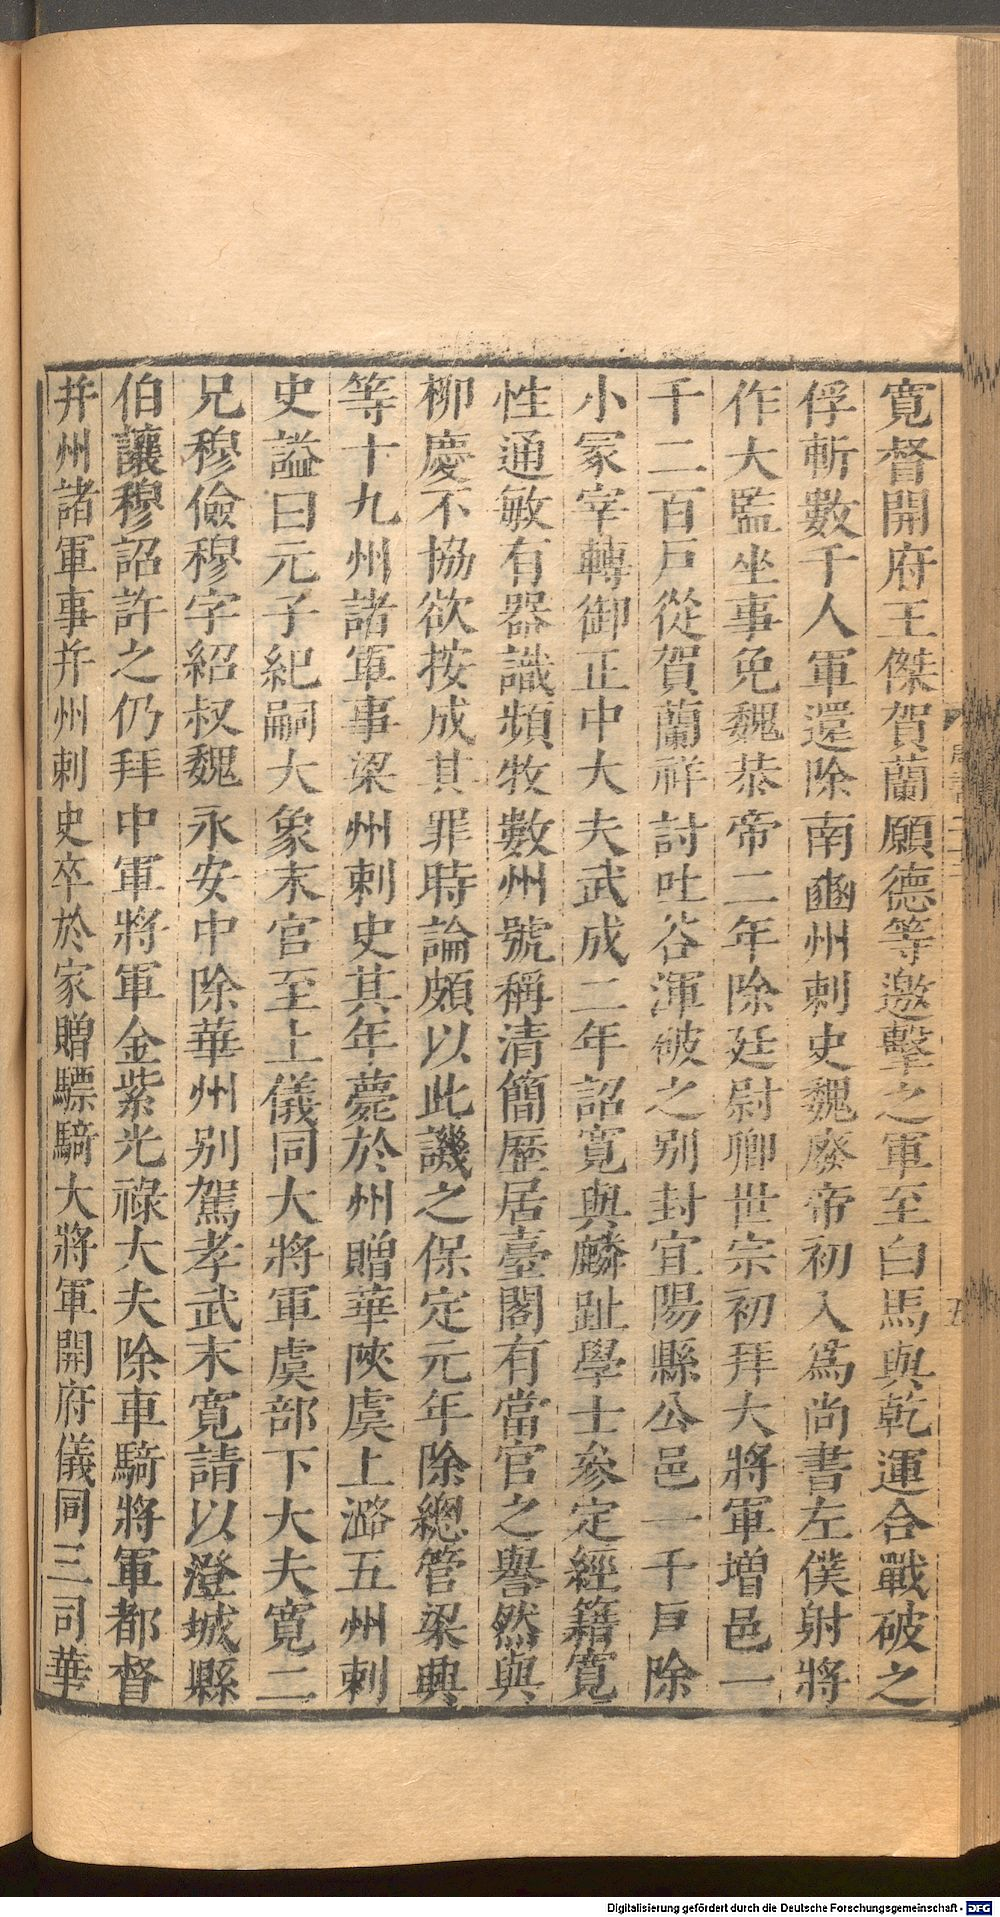 寛督開府王傑賀蘭願德等邀擊之軍至白馬與乾運合戰破之
俘斬數千人軍還除南豳州刺史魏廢帝初入爲尚書左僕射將
作大監坐事免魏恭帝二年除廷尉卿世宗初拜大將軍增邑一
千二百戶從賀蘭祥討吐谷渾破之别封宜陽縣公邑一千戶除
小冢宰轉御正中大夫武成二年詔寛與麟趾學士參定經籍寛
性通敏有器識頻牧數州號稱清簡歷居臺閣有當官之譽然與
柳慶不協欲按成其罪時論頗以此譏之保定元年除總管梁興
等十九州諸軍事梁州刺史其年薨於州贈華陝虞上潞五州刺
史謚曰元子紀嗣大象末官至上儀同大將軍虞部下大夫寛二
兄穆儉穆字紹叔魏永安中除華州别駕孝武末寛請以澄城縣
伯讓穆詔許之仍拜中軍將軍金紫光祿大夫除車騎將軍都督
幷州諸軍事幷州刺史卒於家贈驃騎大將軍開府儀同三司華
Digitalisierung gefördert durch die Deutsche Forschungsgemeinschaft - DFG